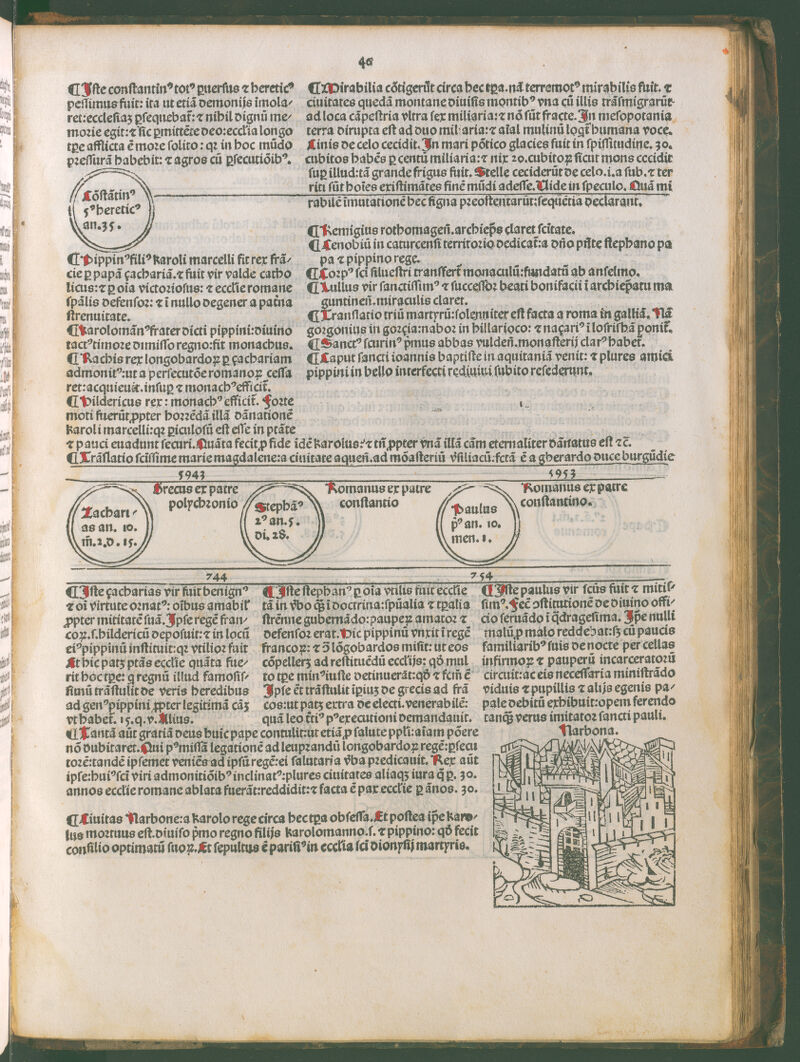 46
¶ Iste constantinꝰ totꝰ ꝑuersus ⁊ hereticꝰ
pessimus fuit: ita ut etiã demonijs ĩmola/
ret: ecclesiaʒ ꝑsequebat᷑: ⁊ nihil dignũ me/
morie egit: ⁊ sic ꝑmittẽte deo: ecclĩa longo
tꝑe afflicta ẽ more solito: qꝛ in hoc mũdo
pressurã habebit: ⁊ agros cũ ꝑsecutiõibꝰ.
Cõstãtinꝰ
5ꝰ hereticꝰ
an. 35.
¶ Pippinꝰ filiꝰ karoli marcelli fit rex frã/
cie ꝑ papã çachariã. ⁊ fuit vir valde catho
licus: ⁊ ꝑ oĩa victoriosus: ⁊ ecclĩe romane
spãlis defensor: ⁊ ĩ nullo degener a patña
strenuitate.
¶ Karolomãnꝰ frater dicti pippini: diuino
tactꝰ timore dimisso regno: fit monachus.
¶ Rachis rex longobardoꝝ ꝑ çachariam
admonitꝰ: ut a persecutõe romanoꝝ cessa
ret: acquieuit. insuꝑ ⁊ monachꝰ efficit᷑.
¶ Hildericus rex: monachꝰ efficit᷑. Forte
moti fuerũt ꝓpter horrẽdã illã dãnationẽ
karoli marcelli: qꝛ ꝑiculosũ est esse in ptãte
⁊ pauci euadunt securi. Quãta fecit ꝓ fide ĩdẽ karolus: ⁊ tñ ꝓpter vnã illã cãm eternaliter dãnatus est ⁊c̃.
¶ Trãslatio scissime marie magdalene: a ciuitate aqueñ. ad mõasteriũ vsiliacũ: fctã ẽ a gherardo duce burgũdie
¶ Mirabilia cõtigerũt circa hec tꝑa. nã terremotꝰ mirabilis fuit. ⁊
ciuitates quedã montane diuisis montibꝰ vna cũ illis trãsmigrarũt
ad loca cãpestria vltra sex miliaria: ⁊ nõ sũt fracte. In mesopotania
terra dirupta est ad duo miliaria: ⁊ aĩal mulinũ logt᷑ humana voce.
Cinis de celo cecidit. In mari põtico glacies fuit in spissitudine. 30.
cubitos habẽs ꝑ centũ miliaria: ⁊ nix 20. cubitoꝝ sicut mons cecidit
suꝑ illud: tã grande frigus fuit. Stelle ceciderũt de celo. i. a sub. ⁊ ter
rit̃ sũt hoĩes existimãtes finẽ mũdi adesse. Vide in speculo. Quã mi
rabilẽ ĩmutationẽ hec signa preostentarũt: sequẽtia declarant.
¶ Remigius rothomageñ. archiep̃s claret scĩtate.
¶ Cenobiũ in caturcensi territorio dedicat᷑: a dño p̃ñte stephano pa
pa ⁊ pippino rege.
¶ Corpꝰ scĩ siluestri transfert᷑ monaculũ: fundatũ ab anselmo.
¶ Lullus vir sanctissimꝰ ⁊ successor beati bonifacii ĩ archiep̃atu ma
guntineñ. miraculis claret.
¶ Translatio triũ martyrũ: solenniter est facta a roma in galliã. Nã
gorgonius in gorçia: nabor in hillarioco: ⁊ naçariꝰ ĩ losrisbã ponit᷑.
¶ Sanctꝰ scurinꝰ p̃mus abbas vuldeñ. monasterij clarꝰ habet᷑.
¶ Caput sancti ioannis baptiste in aquitaniã venit: ⁊ plures amici
pippini in bello interfecti rediuiui subito resederunt.
5943 5953
Zachari/
as an. 10.
m̃. 2. d. 15.
Grecus ex patre
polychronio
Stephãꝰ
2ꝰ an. 5.
di. 28.
Romanus ex patre
constantio
Paulus
pꝰ an. 10.
men. 1.
Romanus ex patre
constantino.
744 754
¶ Iste çacharias vir fuit benignꝰ
⁊ oĩ virtute ornatꝰ: oĩbus amabil᷑
ꝓpter mititatẽ suã. Ipse regẽ fran/
coꝝ. s. hildericũ deposuit: ⁊ in locũ
eiꝰ pippinũ instituit: qꝛ vtilior fuit
Et hic patʒ ptãs ecclĩe quãta fue/
rit hoc tꝑe: q regnũ illud famosis/
simũ trãstulit de veris heredibus
ad genꝰ pippini ꝓpter legitimã cãʒ
vt habet᷑. 15. q. v. Alius.
¶ Iste stephanꝰ ꝑ oĩa vtilis fuit ecclĩe
tã in v̓bo q̃ ĩ doctrina: spũalia ⁊ tꝑalia
strẽnue gubernãdo: pauperꝝ amator ⁊
defensor erat. Hic pippinũ vnxit ĩ regẽ
francoꝝ: ⁊ ꝯ lõgobardos misit: ut eos
cõpelleret ad restituẽdũ ecclĩjs: qð mul
to tꝑe minꝰ iuste detinuerãt: qð ⁊ fcm̃ ẽ
Ipse ẽt trãstulit ĩpiuʒ de grecis ad frã
cos: ut patʒ extra de electi. venerabilẽ:
quã leo t᷑tiꝰ pꝰ executioni demandauit.
¶ Iste paulus vir scũs fuit ⁊ mitis/
simꝰ. Fec̃ ꝯstitutionẽ de diuino offi/
cio seruãdo ĩ q̃dragesima. Ip̃e nulli
malũ ꝓ malo reddebat: sʒ cũ paucis
familiaribꝰ suis de nocte per cellas
infirmoꝝ ⁊ pauperũ incarceratorũ
circuit: ac eis necessaria ministrãdo
viduis ⁊ pupillis ⁊ alijs egenis pa/
pale debitũ exhibuit: opem ferendo
tanq̃ verus imitator sancti pauli.
¶ Tantã aũt gratiã deus huic pape contulit: ut etiã ꝓ salute ppl̃i: aĩam põere
nõ dubitaret. Qui pꝰ missã legationẽ ad leuprandũ longobardoꝝ regẽ: ꝑsecu
torẽ: tandẽ ipsemet veniẽs ad ipsũ regẽ: ei salutaria v̓ba predicauit. Rex aũt
ipse: huiꝰ scĩ viri admonitiõibꝰ inclinatꝰ: plures ciuitates aliaqʒ iura q̃ ꝑ. 30.
annos ecclĩe romane ablata fuerãt: reddidit: ⁊ facta ẽ pax ecclĩe ꝑ ãnos. 30.
¶ Ciuitas Narbone: a karolo rege circa hec tꝑa obsessa. Et postea ip̃e karo/
lus mortuus est. diuiso p̃mo regno filijs karolomanno. s. ⁊ pippino: qð fecit
consilio optimatũ suoꝝ. Et sepultus ẽ parisiꝰ in ecclĩa scĩ dionysij martyris.
Narbona.